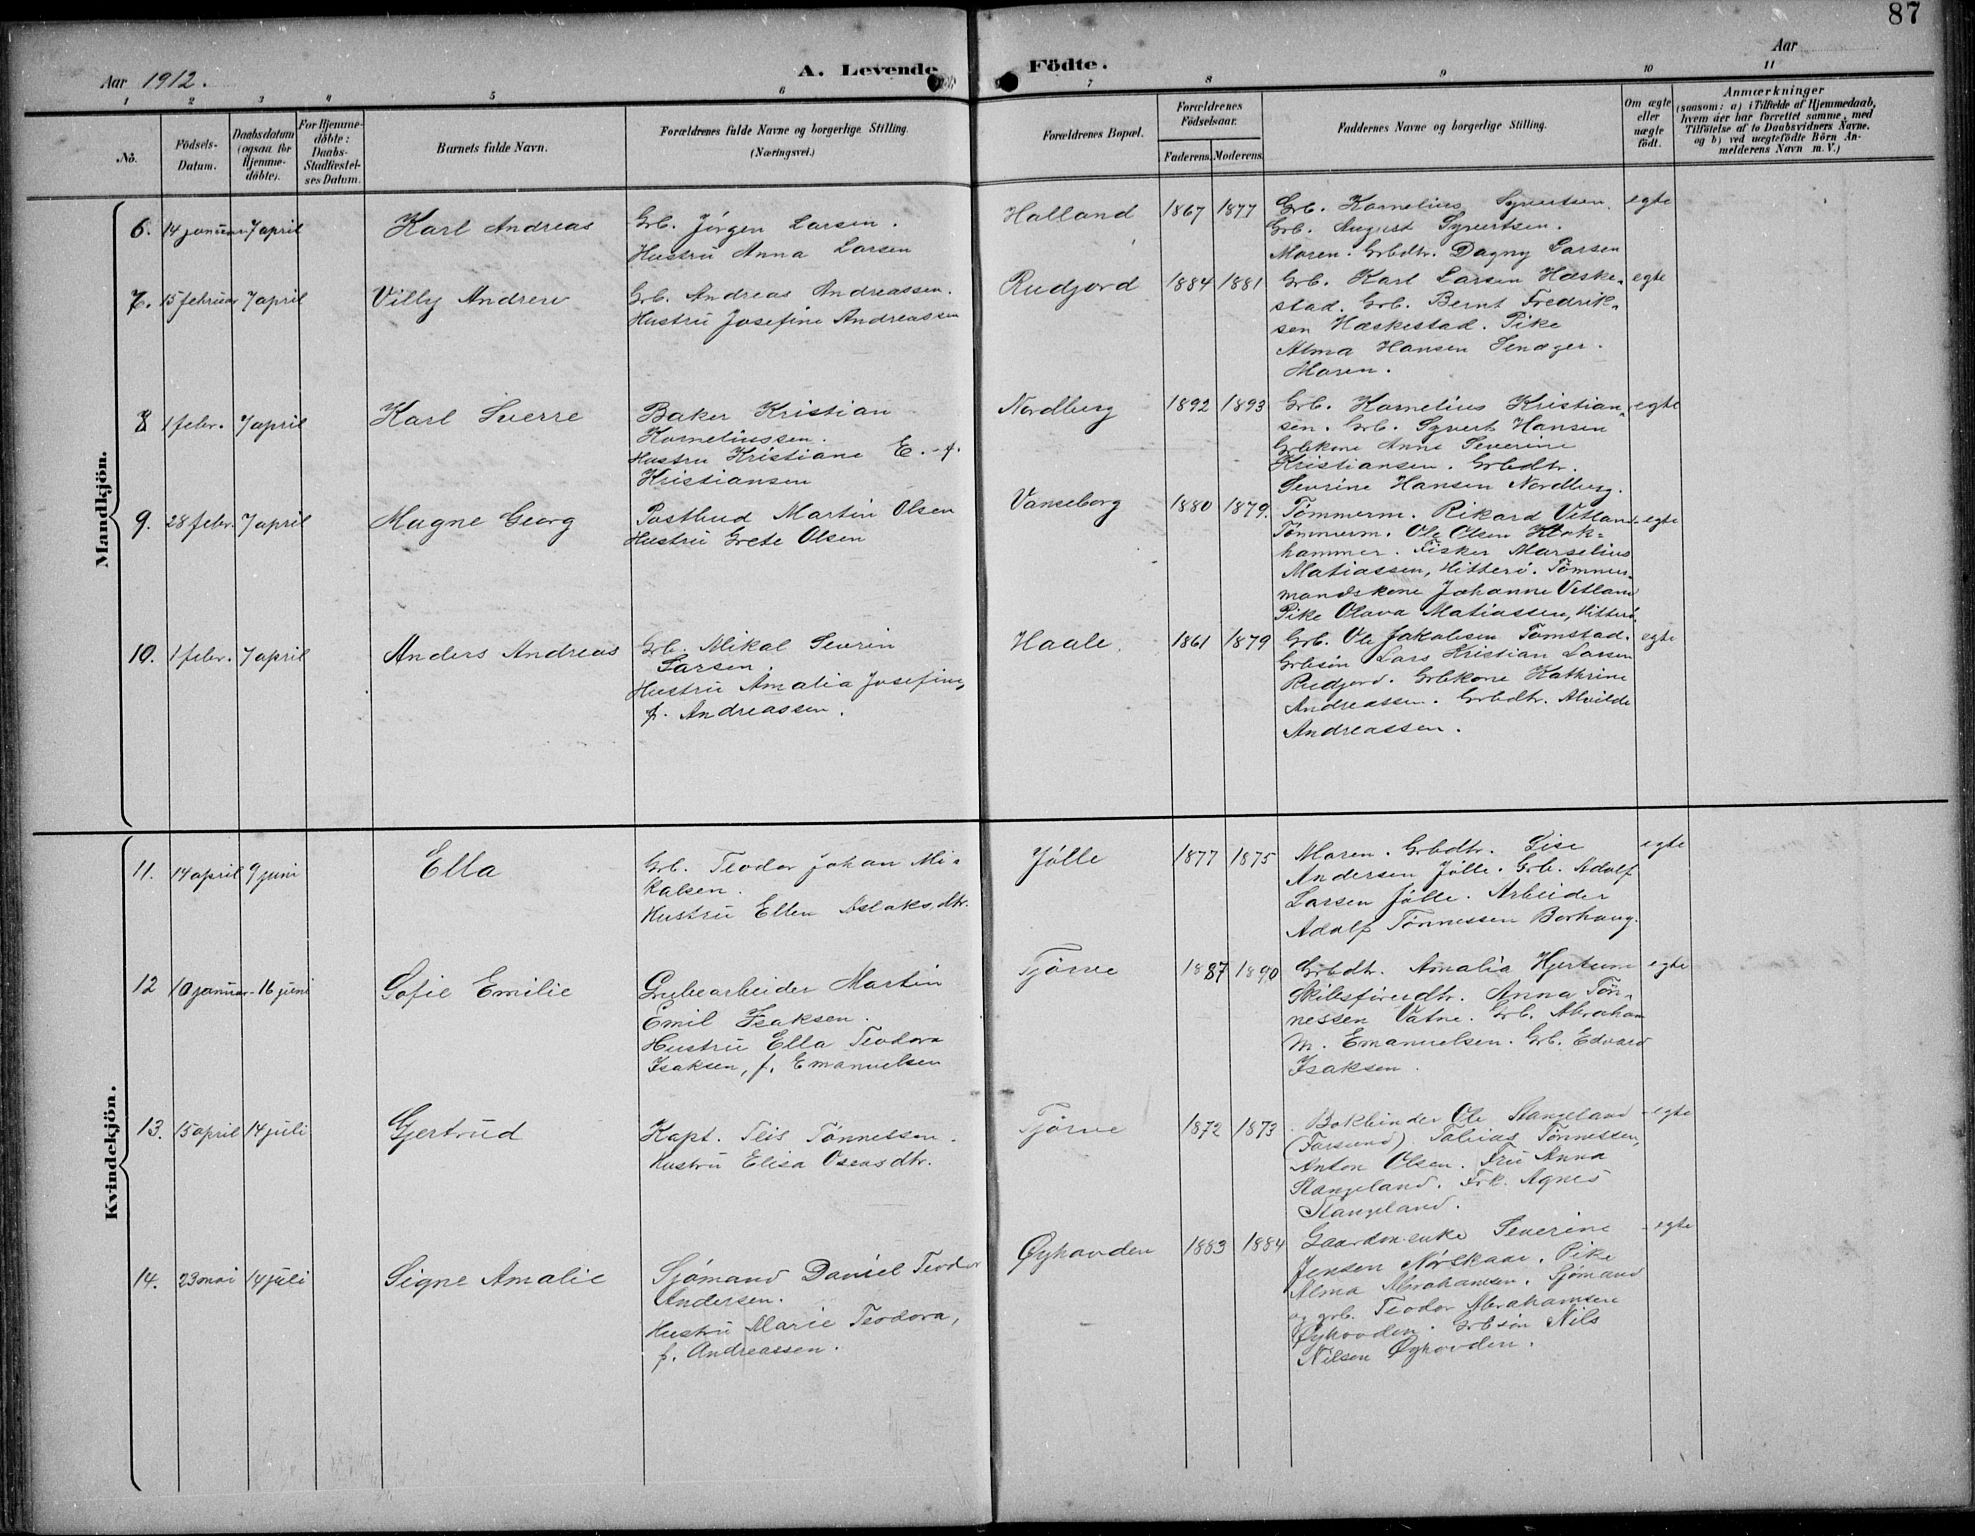 87
Aar 1912.
A. Levende Födte.
Aar
1 2 3 4 5 6 7 8 9 10 11
No.
Födsels-
Datum.
Daabsdatum
(ogsaa for
Hjemme-
döbte).
For Hjemme-
döbte:
Daabs-
Stadfæstel-
ses Datum.
Barnets fulde Navn.
Forældrenes fulde Navne og borgerlige Stilling.
(Næringsvei.)
Forældrenes Bopæl.
Forældrenes
Födselsaar.
Faderens. Moderens.
Faddernes Navne og borgerlige Stilling.
Om ægte
eller
uægte
födt.
Anmærkninger
(saasom: a) i Tilfælde af Hjemmedaab,
hvem der har forrettet samme, med
Tilföielse af to Daabsvidners Navne,
og b) ved uægtefödte Börn An-
melderens Navn m. V.)
Mandkjön.
6. 14 januar 7 april
Karl Andreas
Grb. Jörgen Larsen.
Hustru Anna Larsen
Halland
1867 1877
Grb. Kornelius Syvertsen.
Grb. August Syvertsen.
Moren. Grbdtr. Dagny Larsen
egte
7. 15 februar 7 april
Villy Andreu
Grb. Andreas Andreassen.
Hustru Josefine Andreassen
Rudjord
1884 1881
Grb. Karl Larsen Hæske-
stad. Grb. Bernt Fredrik-
sen Hæskestad. Pike
Alma Hansen Penæger.
Moren.
egte
8 1 febr. 7 april
Karl Sverre
Baker Kristian
Korneliussen.
Hustru Kristiane E. f.
Kristiansen
Nordberg
1892 1893
Grb. Kornelius Kristian-
sen. Grb. Syvert Hansen
Grbkone Anne Severine
Kristiansen. Grbdtr.
Sevrine Hansen Nordberg.
egte
9. 28 febr. 7 april
Magne Georg
Postbud Martin Olsen
Hustru Grete Olsen
Vanseborg
1880 1879.
Tømmerm. Rikard Vetland.
Tømmerm. Ole Olsen Klok-
hammer. Fisker Marselius
Matiassen, Hitterö. Tømmer-
mandskone Johanne Vetland
Pike Olava Matiassen, Hitterö
egte
10. 1 febr. 7 april
Anders Andreas
Grb. Mikal Severin
Larsen.
Hustru Amalia Josefine,
f. Andreassen.
Haale.
1861 1879
Grb. Ole Jakobsen Tomstad.
Grbsön Lars Kristian Larsen
Rudjord. Grbkone Kathrine
Andreassen. Grbdtr. Alvilde
Andreassen.
egte
Kvindekjön.
11. 14 april 9 juni
Ella
Grb. Teodor Johan Mi-
kalsen.
Hustru Ellen Aslaksdtr.
Jölle
1877 1875
Moren. Grbdtr. Lise
Andersen Jölle. Grb. Adolf
Larsen Jölle. Arbeider
Adolf Tönnessen Borhaug.
egte
12 10 januar 16 juni
Sofie Emilie
Grubearbeider Martin
Emil Isaksen.
Hustru Ella Teodora
Isaksen, f. Emanuelsen
Tjörve
1887 1890
Grbdtr. Amalia Hjertum
Skibsförerdtr. Anna Tön-
nessen Vatne. Grb. Abraham
M. Emanuelsen. Grb. Edvard
Isaksen.
egte
13. 15 april 14 juli
Gjertrud
Kapt. Teis Tønnessen.
Hustru Elisa Oseasdtr.
Tjörve
1872 1873
Bokbinder Ole Stangeland
(Farsund). Tobias Tönnessen,
Anton Olsen. Fru Anna
Stangeland. Frk. Agnes
Stangeland.
egte
14. 23 mai 14 juli
Signe Amalie
Sjömand Daniel Teodor
Andersen.
Hustru Marie Teodora,
f. Andreassen.
Øyhovden
1883 1884
Gaardm.enke Severine
Jensen Nörskaar. Pike
Alma Abrahamsen. Sjömand
og grb. Teodor Abrahamsen
Øyhovden. Grbsön Nils
Nilsen Øyhovden.
egte